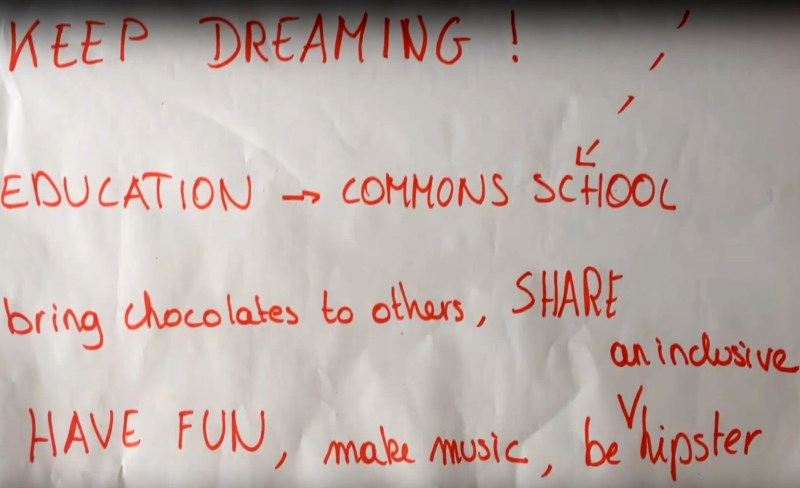 KEEP DREAMING!
EDUCATION → COMMONS SCHOOL
bring chocolates to others, SHARE
HAVE FUN, make music, be an inclusive hipster